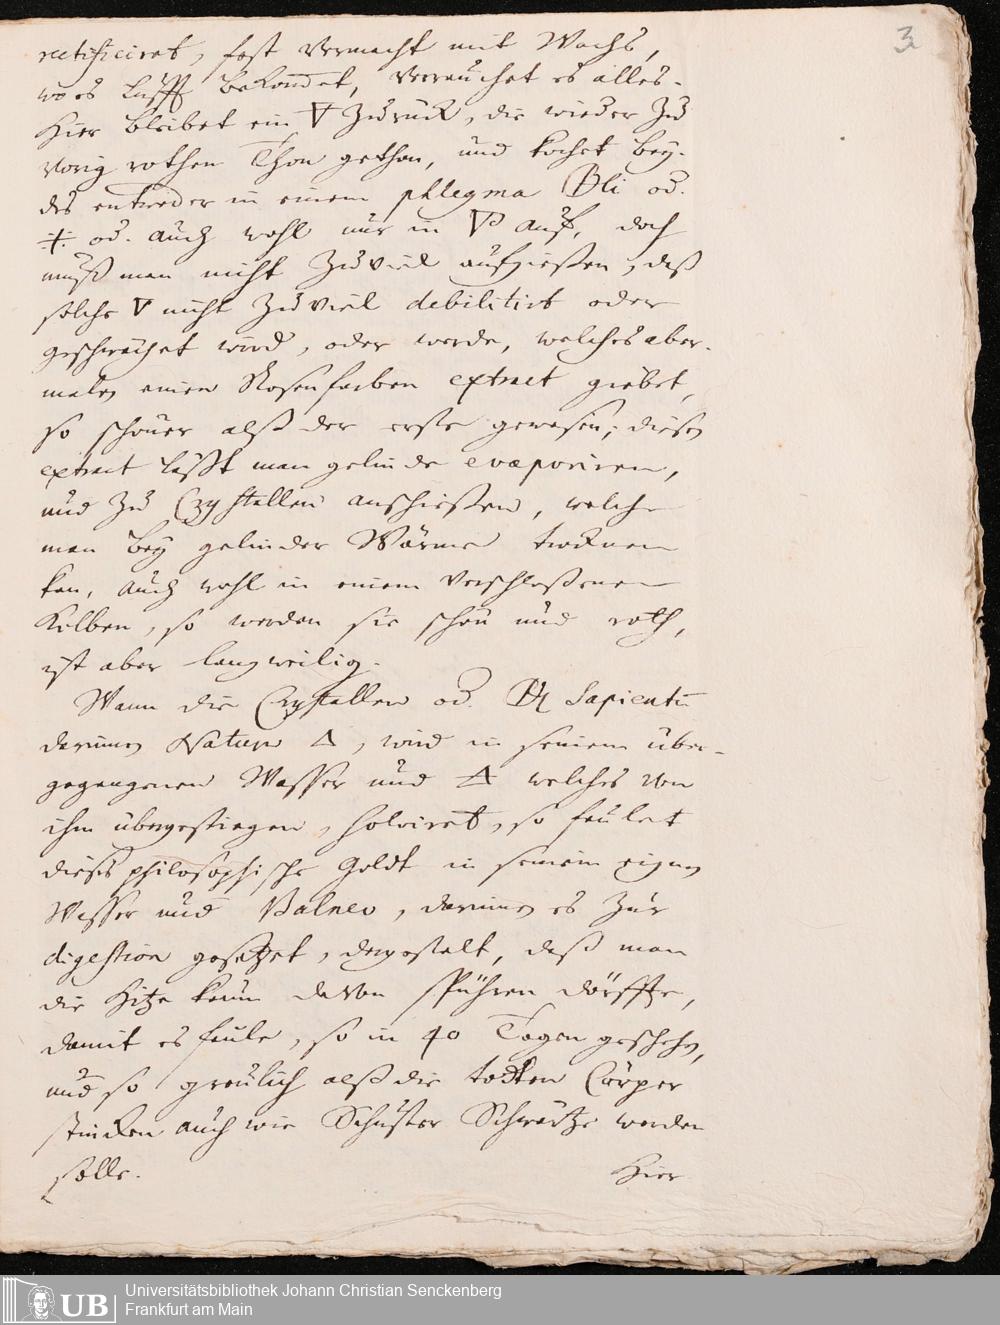 3
rectificiret, fast vermacht mit Wachs,
wo es Lufft bekommet, verrauchet es alles.
Hier bleibet ein 🜄 zurück, die wieder zu
vorig rothen Thon gethan, und kochet bey-
des entweder in einem phlegma ⦶li od.
od. auch wohl nur in auf, doch
muß man nicht zuviel aufgießen, daß
solche 🜄 nicht zuviel debilitirt oder
geschwächet wird, oder werde, welches aber-
malen einen Rosenfarben extract giebet,
so schöner alß der erste gewesen; diesen
extract läßt man gelinde evaporiren,
und zu Crystallen anschießen, welche
man bey gelinder Wärme trocknen
kan, auch wohl in einem verschloßenen
Kolben, so werden sie schön und roth,
ist aber langweilig.
Wann die Crystallen od. Sapientū
darinnen Naturæ 🜂, wird in seinem über-
gegangenen Wasser und 🜁 welches von
ihm übergestiegen, solviret, so faulet
dieses philosophische Goldt in seinem eignen
Wasser und Balneo, darinnen es zur
digestion gesetzet, dergestalt, daß man
die Hitze kaum davon spühren dörffte,
damit es faule, so in 40 Tagen geschehen,
und so greulich alß die todten Cörper
stincken auch wie Schuster Schwärtze werden
solle.
Hier
UB
Universitätsbibliothek Johann Christian Senckenberg
Frankfurt am Main